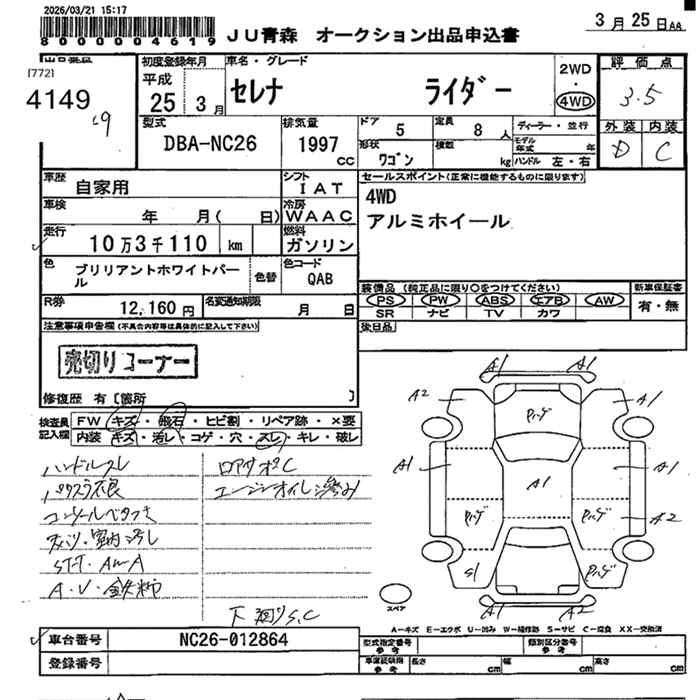 2026/03/21 15:17
8000004619
JU青森 オークション出品申込書
3月25日AA
[772]
4149
初度登録年月
平成
25 3月
車名・グレード
セレナ ライダー
2WD
・
4WD
評価点
3.5
型式
DBA-NC26
排気量
1997
CC
ドア 5
定員 8 人
形状 ワゴン
積数 kg
ディーラー・並行
モデル年式 年
ハンドル 左・右
外装 内装
D C
車歴
自家用
シフト
IAT
車検
年 月( 日)
冷房
WAAC
走行
10万3千110 km
燃料
ガソリン
色
ブリリアントホワイトパール
色替
色コード
QAB
R券
12,160円
名変通知期限
月 日
セールスポイント(正常に機能するものに限ります)
4WD
アルミホイール
装備品 (純正品に限り○をつけてください)
PS PW ABS エアB AW
SR ナビ TV カワ
新車保証書
有・無
後日品
注意事項申告欄(不具合内容等は具体的に記入して下さい)
売切りコーナー
修復歴 有〔箇所 〕
検査員記入欄
FW キズ・飛石・ヒビ割・リペア跡・×要
内装 キズ・汚レ・コゲ・穴・スレ・キレ・破レ
ハンドルスレ
コンソールベタつき
A・V・鉄粉
ロアアオC
エンジンオイル滲み
下廻りS.C
A1 A1
A2 A1
パルゲ
A1 A1 A1
パルゲ パルゲ A2
S1 パルゲ
A1 A2
スペア
A－キズ E－エクボ U－凹み W－補修跡 S－サビ C－腐食 XX－交換済
車台番号
NC26-012864
登録番号
型式指定番号
参考
類別区分番号
参考
車庫証明用
参考
長さ cm
幅 cm
高さ cm